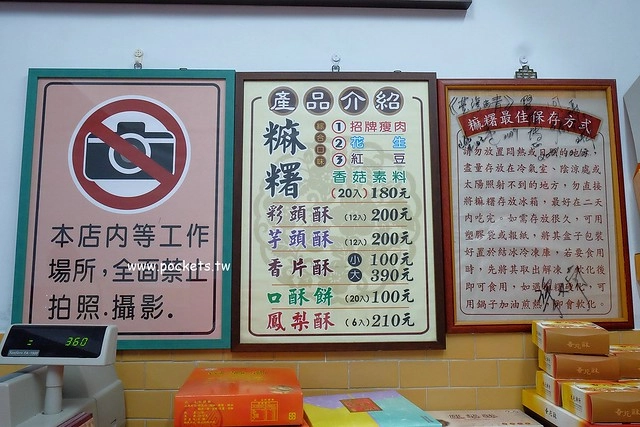 本店內等工作
場所,全面禁止
拍照.攝影.
www.pockets.tw
360
產品介紹
麻糬
綜合口味
①招牌瘦肉
②花生
③紅豆
香菇素料
(20入)180元
彩頭酥(12入)200元
芋頭酥(12入)200元
香片酥 小100元
大390元
口酥餅(20入)100元
鳳梨酥(6入)210元
麻糬最佳保存方式
請勿放置悶熱或
盡量存放在涼氣室、陰涼處或
太陽照射不到的地方,勿直接
將麻糬存放冰箱,最好在二天
內吃完。如需存放很久,可用
塑膠袋或報紙,將其盒子包裝
好置於結冰冷凍庫,若要食用
時,先將其取出解凍,軟化後
即可食用,如遇
用鍋子加油煎熱,即會軟化。